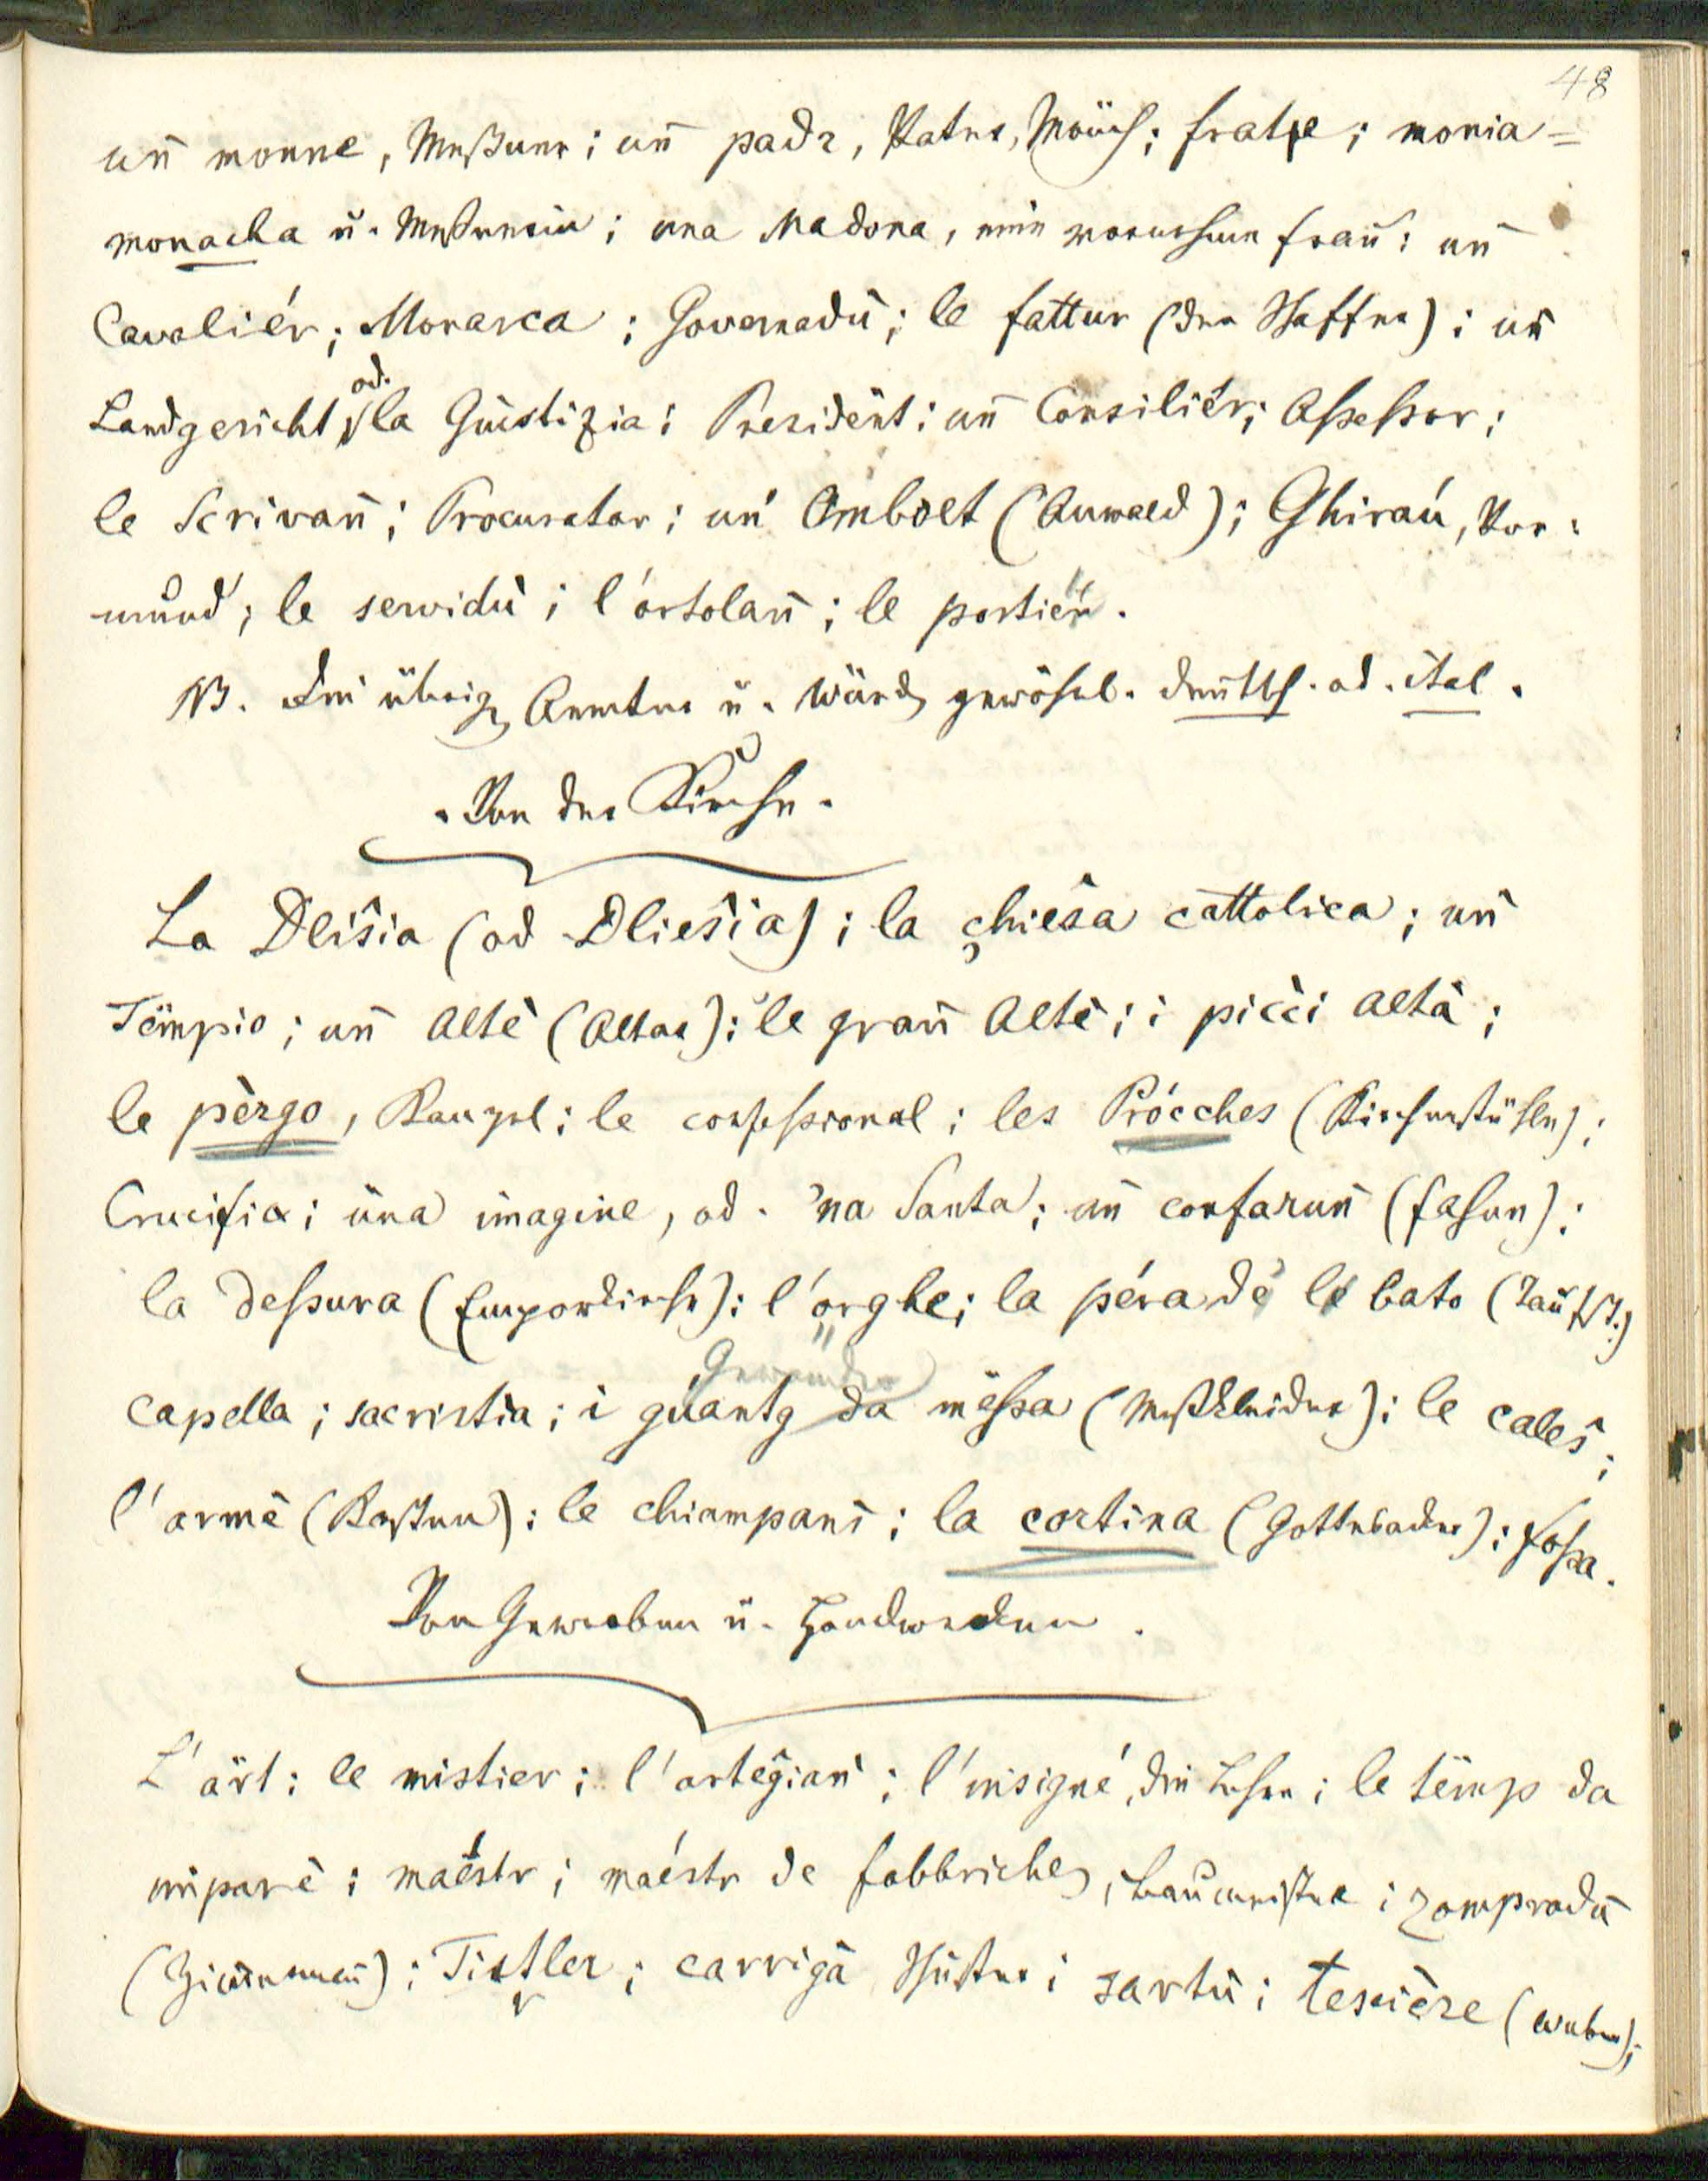 48
un̄ monne, Meßner; un̄ padr, Pater, Mönch; frate; monia =
monacha u. Meßnerin; una Madona, eine vornehme Frau; un̄
Cavaliér; Monarca; Governadù; le fattur (der Schaffer); un̄
Landgericht, od. la Giustizia; President; un̄ Consiliér; Aßeßor;
le Scrivan̄; Procurator; un̄ Omboet (Anwald); Ghiraú, Vor-
mund; le servidù; l'ortolan̄; le portiër.
NB. Die übrigen Aemter u. Würden gewöhnl. deutsch. od. ital.
Von der Kirche.
La Dlîsia (od Dliesia); la chiesa cattolica; un̄
Tëmpio; un̄ Altè (Altar); le gran̄ Altè; i picci altà;
le pèrgo, Kanzel; le confeßional; les Prócches (Kirchenstühle);
Crucifix; üna imagine, od. 'na Santa; un̄ confarun̄ (Fahne);
la deßura (Emporkirche); l'orghe; la péra de le bato (Taufst.)
Gewänder
capella; sacristia; i guantg da mëßa (Meßkleider); le calesˆ;
l'armè (Kasten); le chiampanì; la cortina (Gottesacker); foßa.
Von Gewerben u. Handwerken.
L'ärt; le mistier; l'artegian̄; l'insigné, die Lehre; le tëmp da
imparè; maéstr; maéstr de fabbriche, Baumeister; zompradù
(Zimmerman̄); Tistler; carrigà Schuster; sartù; tescière (Weber);